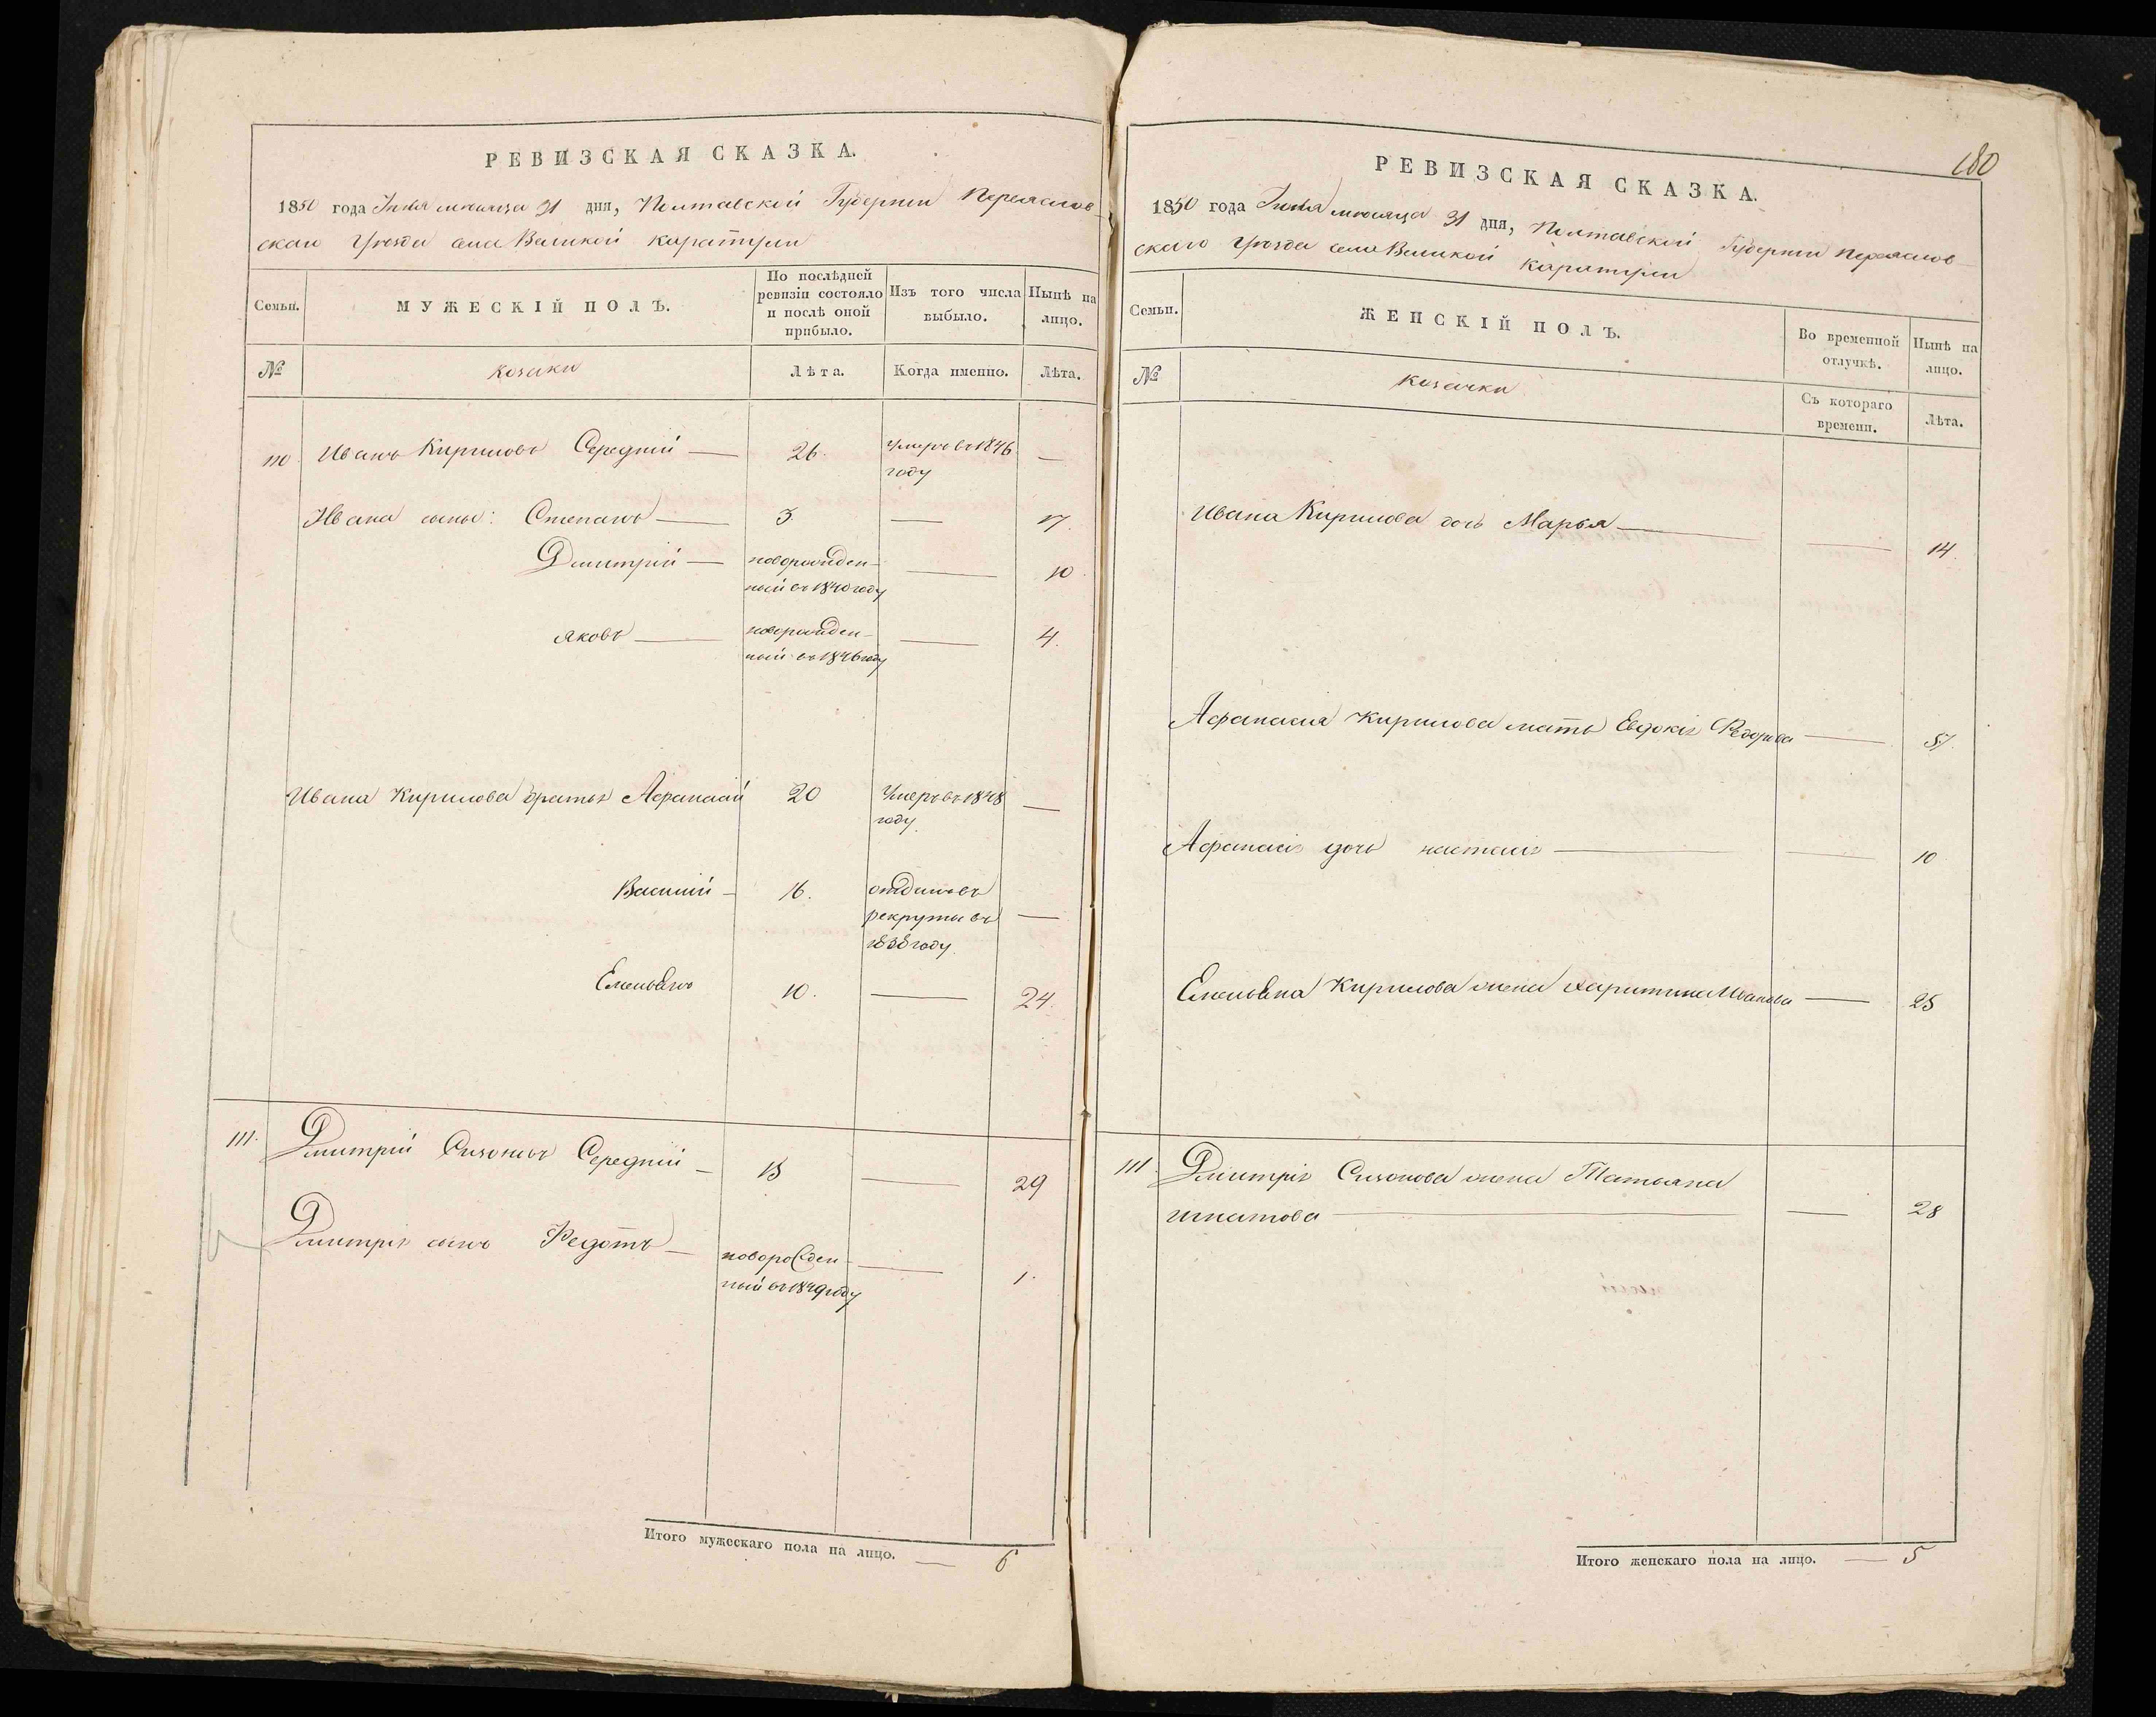 РЕВИЗСКАЯ СКАЗКА.
1850 года мѣсяца 31 дня, Полтавской Губерніи Переяслов-
скаго Уѣзда села Великой Каратули
Семьи.
МУЖЕСКІЙ ПОЛЪ.
По послѣдней
ревизіи состояло
и послѣ оной
прибыло.
Изъ того числа
выбыло.
Нынѣ на
лицо.
№
козаки
Лѣта.
Когда именно.
Лѣта.
110 Иванъ Кириловъ Середній — 26. Умеръ въ 1846 —
году
Ивана сыны: Степанъ — 3. — 17.
Дмитрій — новорожден- — 10.
ный въ 1840 году
Яковъ — новорожден- — 4.
ный въ 1846 году
Ивана Кирилова братья Афанасий 20 Умеръ въ 1848 —
году.
Василий — 16. отданъ въ
рекруты въ —
1838 году.
Емельянъ 10. — 24.
111. Дмитрій Середній — 15 — 29
Дмитрія сынъ Федотъ — новорожден- — 1.
ный въ 1849 году
Итого мужескаго пола на лицо. — 6
180
РЕВИЗСКАЯ СКАЗКА.
1850 года мѣсяца 31 дня, Полтавской Губерніи Переяслов
скаго Уѣзда села Великой Каратули
Семьи.
ЖЕНСКІЙ ПОЛЪ.
Во временной
отлучкѣ.
Нынѣ на
лицо.
№
козачки
Съ котораго
времени.
Лѣта.
Ивана Кирилова дочь Марья — — 14.
Афанасія Кирилова мать Евдокія Федорова — 57.
Афанасія дочь настасія — — 10
Емельяна Кирилова жена Харитина Иванова — 25
111. Дмитрія жена Татьяна
игнатова — — 28
Итого женскаго пола на лицо. — 5